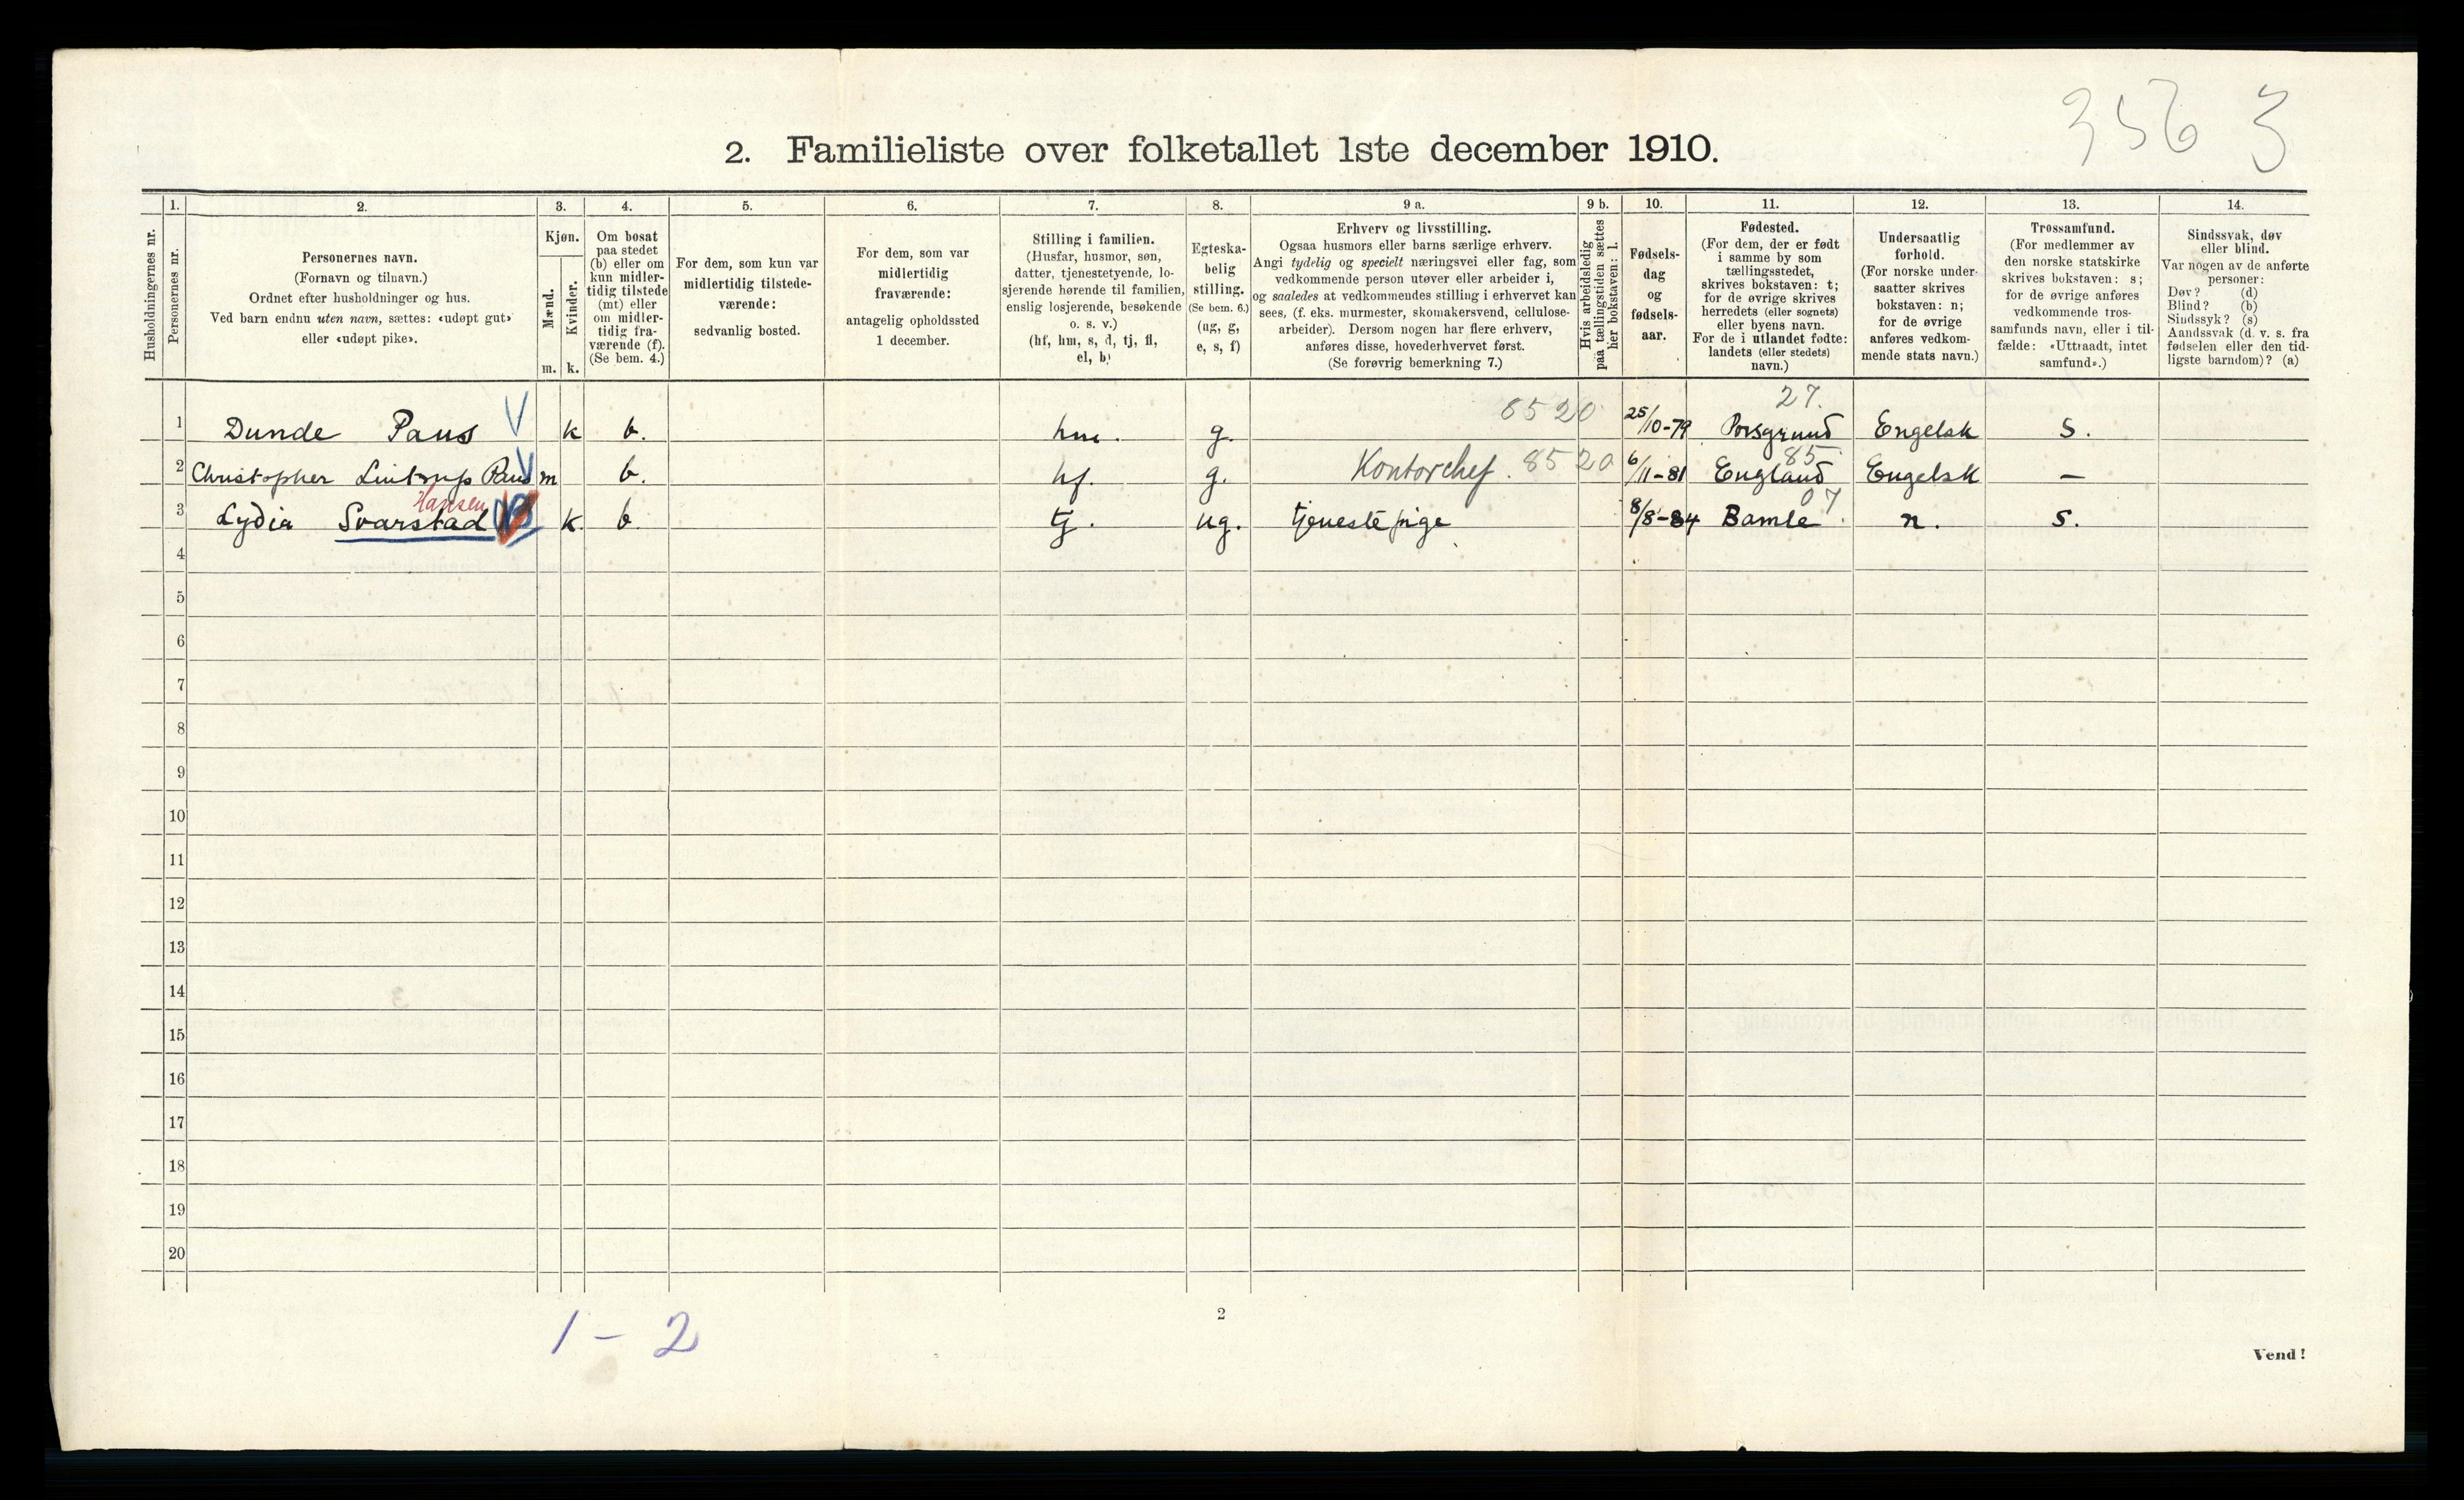 356 3
2. Familieliste over folketallet 1ste december 1910.
1. 2. 3. 4. 5. 6. 7. 8. 9 a. 9 b. 10. 11. 12. 13. 14.
Husholdningernes nr.
Personernes nr.
Personernes navn.
(Fornavn og tilnavn.)
Ordnet efter husholdninger og hus.
Ved barn endnu uten navn, sættes: «udøpt gut»
eller «udøpt pike».
Kjøn.
Mænd.
Kvinder.
m. k.
Om bosat
paa stedet
(b) eller om
kun midler-
tidig tilstede
(mt) eller
om midler-
tidig fra-
værende (f).
(Se bem. 4.)
For dem, som kun var
midlertidig tilstede-
værende:
sedvanlig bosted.
For dem, som var
midlertidig
fraværende:
antagelig opholdssted
1 december.
Stilling i familien.
(Husfar, husmor, søn,
datter, tjenestetyende, lo-
sjerende hørende til familien,
enslig losjerende, besøkende
o. s. v.)
(hf, hm, s, d, tj, fl,
el, b)
Egteska-
belig
stilling.
(Se bem. 6.)
(ug, g,
e, s, f)
Erhverv og livsstilling.
Ogsaa husmors eller barns særlige erhverv.
Angi tydelig og specielt næringsvei eller fag, som
vedkommende person utøver eller arbeider i,
og saaledes at vedkommendes stilling i erhvervet kan
sees, (f. eks. murmester, skomakersvend, cellulose-
arbeider). Dersom nogen har flere erhverv,
anføres disse, hovederhvervet først.
(Se forøvrig bemerkning 7.)
Hvis arbeidsledig
paa tællingstiden sættes
her bokstaven: l.
Fødsels-
dag
og
fødsels-
aar.
Fødested.
(For dem, der er født
i samme by som
tællingsstedet,
skrives bokstaven: t;
for de øvrige skrives
herredets (eller sognets)
eller byens navn.
For de i utlandet fødte:
landets (eller stedets)
navn.)
Undersaatlig
forhold.
(For norske under-
saatter skrives
bokstaven: n;
for de øvrige
anføres vedkom-
mende stats navn.)
Trossamfund.
(For medlemmer av
den norske statskirke
skrives bokstaven: s;
for de øvrige anføres
vedkommende tros-
samfunds navn, eller i til-
fælde: «Uttraadt, intet
samfund».)
Sindssvak, døv
eller blind.
Var nogen av de anførte
personer:
Døv? (d)
Blind? (b)
Sindssyk? (s)
Aandssvak (d. v. s. fra
fødselen eller den tid-
ligste barndom)? (a)
8520 27.
1 Dunde Paus k b. hm. g. 25/10-79 Porsgrund Engelsk s.
85
2 Christopher Lintrup Paus m b. hf. g. Kontorchef. 8520 6/11-81 England Engelsk —
Hansen 07
3 Lydia Svarstad k. b tj. ug. tjenestepige 8/8-84 Bamle. n. s.
4
5
6
7
8
9
10
11
12
13
14
15
16
17
18
19
20
1 - 2
2
Vend!